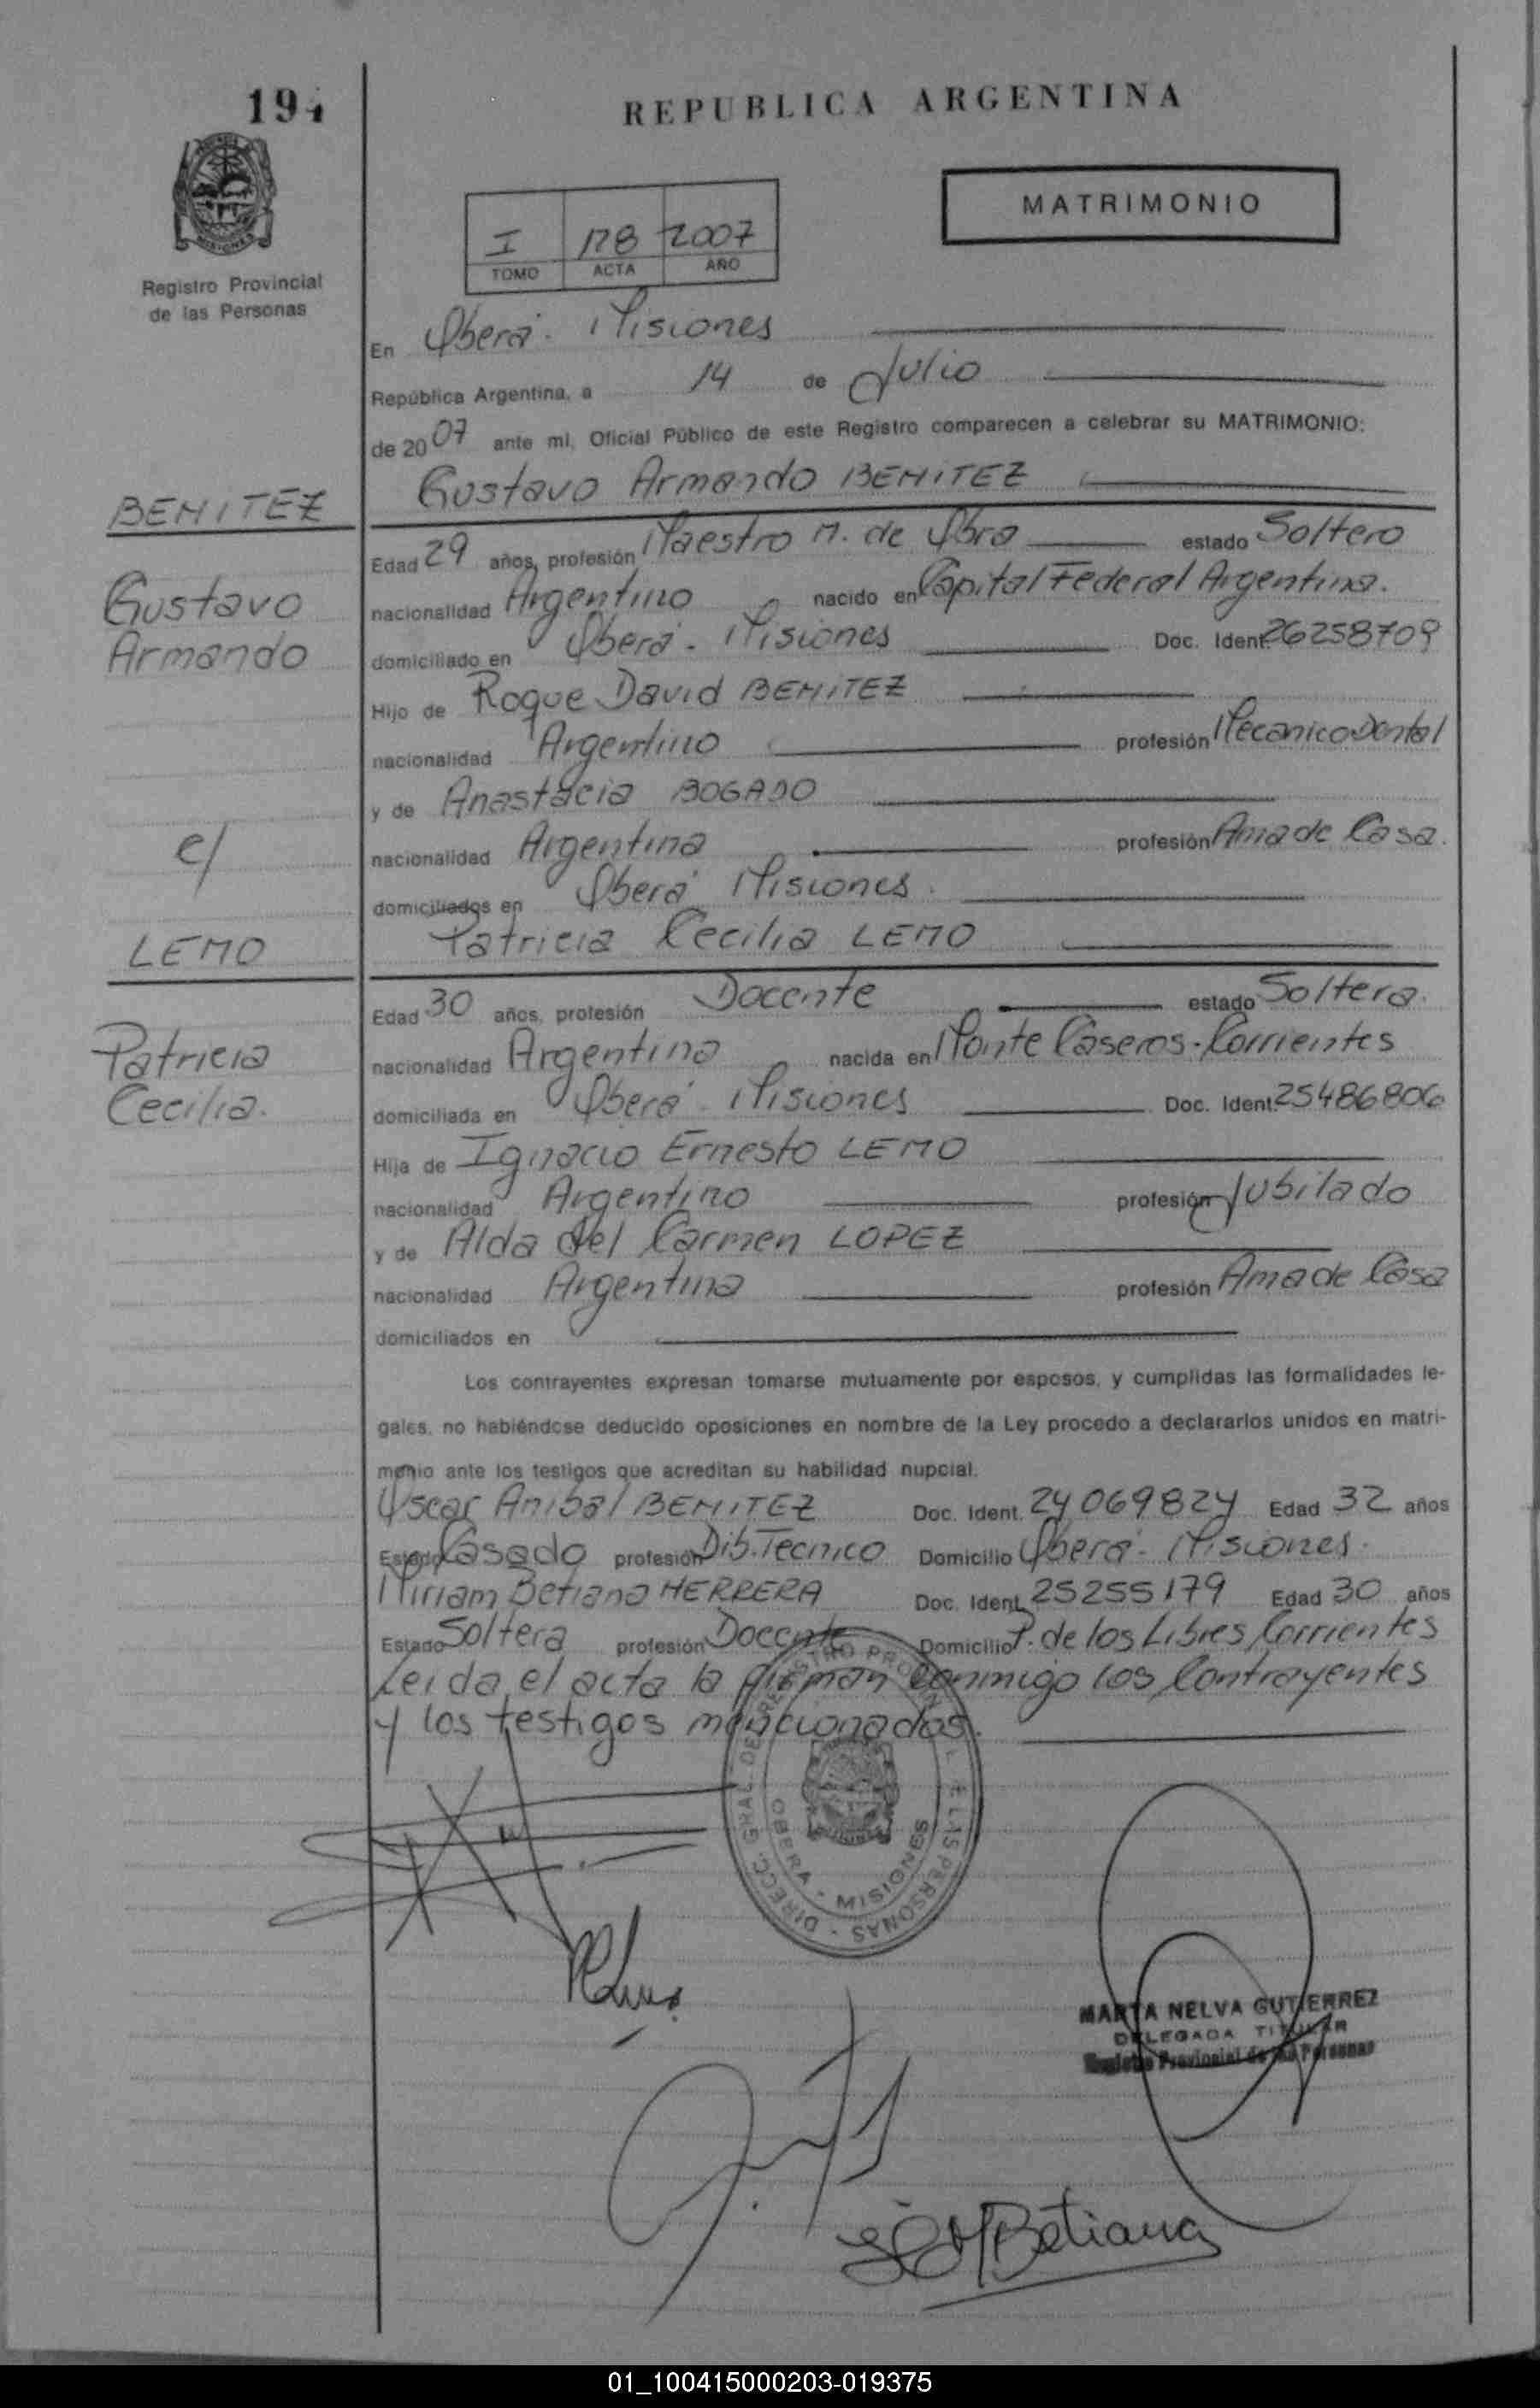 REPUBLICA ARGENTINA
MATRIMONIO
Registro Provincial
de las Personas
I 178 2007
TOMO ACTA AÑO
En Oberá - Misiones
República Argentina, a 14 de Julio
de 2007 ante mi, Oficial Público de este Registro comparecen a celebrar su MATRIMONIO:
BENITEZ
Gustavo Armando BENITEZ
Gustavo
Armando
Edad 29 años, profesión Maestro M. de Obra estado Soltero
nacionalidad Argentino nacido en Capital Federal Argentina.
domiciliado en Oberá - Misiones Doc. Ident. 26258709
Hijo de Roque David BENITEZ
nacionalidad Argentino profesión Mecanico Dental
y de Anastacia BOGADO
c/
nacionalidad Argentina profesión Ama de Casa.
domiciliados en Oberá Misiones.
LEMO
Patricia Cecilia LEMO
Patricia
Cecilia.
Edad 30 años, profesión Docente estado Soltera.
nacionalidad Argentina nacida en Monte Caseros - Corrientes
domiciliada en Oberá - Misiones Doc. Ident. 25486806
Hija de Ignacio Ernesto LEMO
nacionalidad Argentino profesión Jubilado
y de Alda del Carmen LOPEZ
nacionalidad Argentina profesión Ama de Casa
domiciliados en
Los contrayentes expresan tomarse mutuamente por esposos, y cumplidas las formalidades le-
gales, no habiéndose deducido oposiciones en nombre de la Ley procedo a declararlos unidos en matri-
monio ante los testigos que acreditan su habilidad nupcial.
Oscar Anibal BENITEZ Doc. Ident. 24069824 Edad 32 años
Estado Casado profesión Dib. Tecnico Domicilio Oberá - Misiones.
Miriam Betiana HERRERA Doc. Ident. 25255179 Edad 30 años
Estado Soltera profesión Docente Domicilio P. de los Libres Corrientes
Leida el acta la firman conmigo los Contrayentes
y los testigos mencionados.
DIRECC. GRAL. DEL REGISTRO PROVINCIAL DE LAS PERSONAS
OBERA - MISIONES
MARTA NELVA GUTIERREZ
DELEGADA TITULAR
Registro Provincial de las Personas
Betiana
01_100415000203-019375